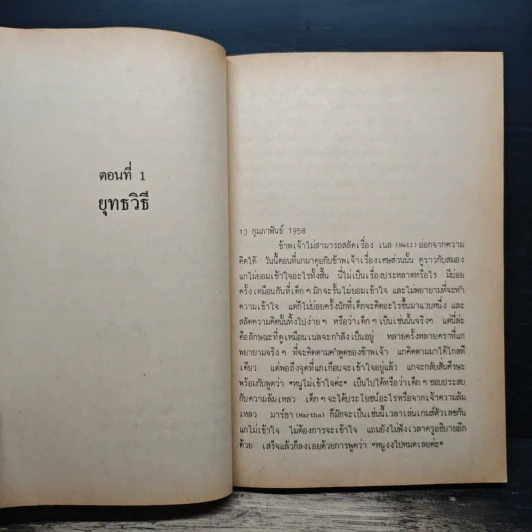 ตอนที่ 1
ยุทธวิธี
13 กุมภาพันธ์ 1958
ข้าพเจ้าไม่สามารถสลัดเรื่อง เนล (Nell) ออกจากความ
คิดได้ วันนี้ตอนที่แกมาคุยกับข้าพเจ้าเรื่องเศษส่วนนั้น ดูราวกับสมอง
แกไม่ยอมเข้าใจอะไรทั้งสิ้น นี่ไม่เป็นเรื่องประหลาดหรือไร มีบ่อย
ครั้งเหมือนกันที่เด็กๆ มักจะรั้นไม่ยอมเข้าใจ และไม่พยายามที่จะทำ
ความเข้าใจ แต่ก็ไม่บ่อยครั้งนักที่เด็กจะคิดอะไรขึ้นมาแวบหนึ่ง และ
สลัดความคิดนั้นทิ้งไปง่ายๆ หรือว่าเด็กๆ เป็นเช่นนั้นจริงๆ แต่นี่ล่ะ
คือลักษณะที่ดูเหมือนเนลจะกำลังเป็นอยู่ หลายครั้งหลายคราที่แก
พยายามจริงๆ ที่จะคิดตามคำพูดของข้าพเจ้า แกคิดตามมาได้ไกลที
เดียว แต่พอถึงจุดที่แกเกือบจะเข้าใจอยู่แล้ว แกจะกลับสั่นศีรษะ
พร้อมกับพูดว่า "หนูไม่เข้าใจค่ะ" เป็นไปได้หรือว่าเด็กๆ ชอบประสบ
กับความล้มเหลว เด็กๆ จะได้ประโยชน์อะไรหรือจากเจ้าความล้ม
เหลว มาร์ธา (Martha) ก็มักจะเป็นเช่นนี้ เวลาเล่นเกมส์ตัวเลขกัน
แกไม่เข้าใจ ไม่ต้องการจะเข้าใจ แถมยังไม่ฟังเวลาครูอธิบายอีก
ด้วย เสร็จแล้วก็ลงเอยด้วยการพูดว่า "หนูงงไปหมดเลยค่ะ"